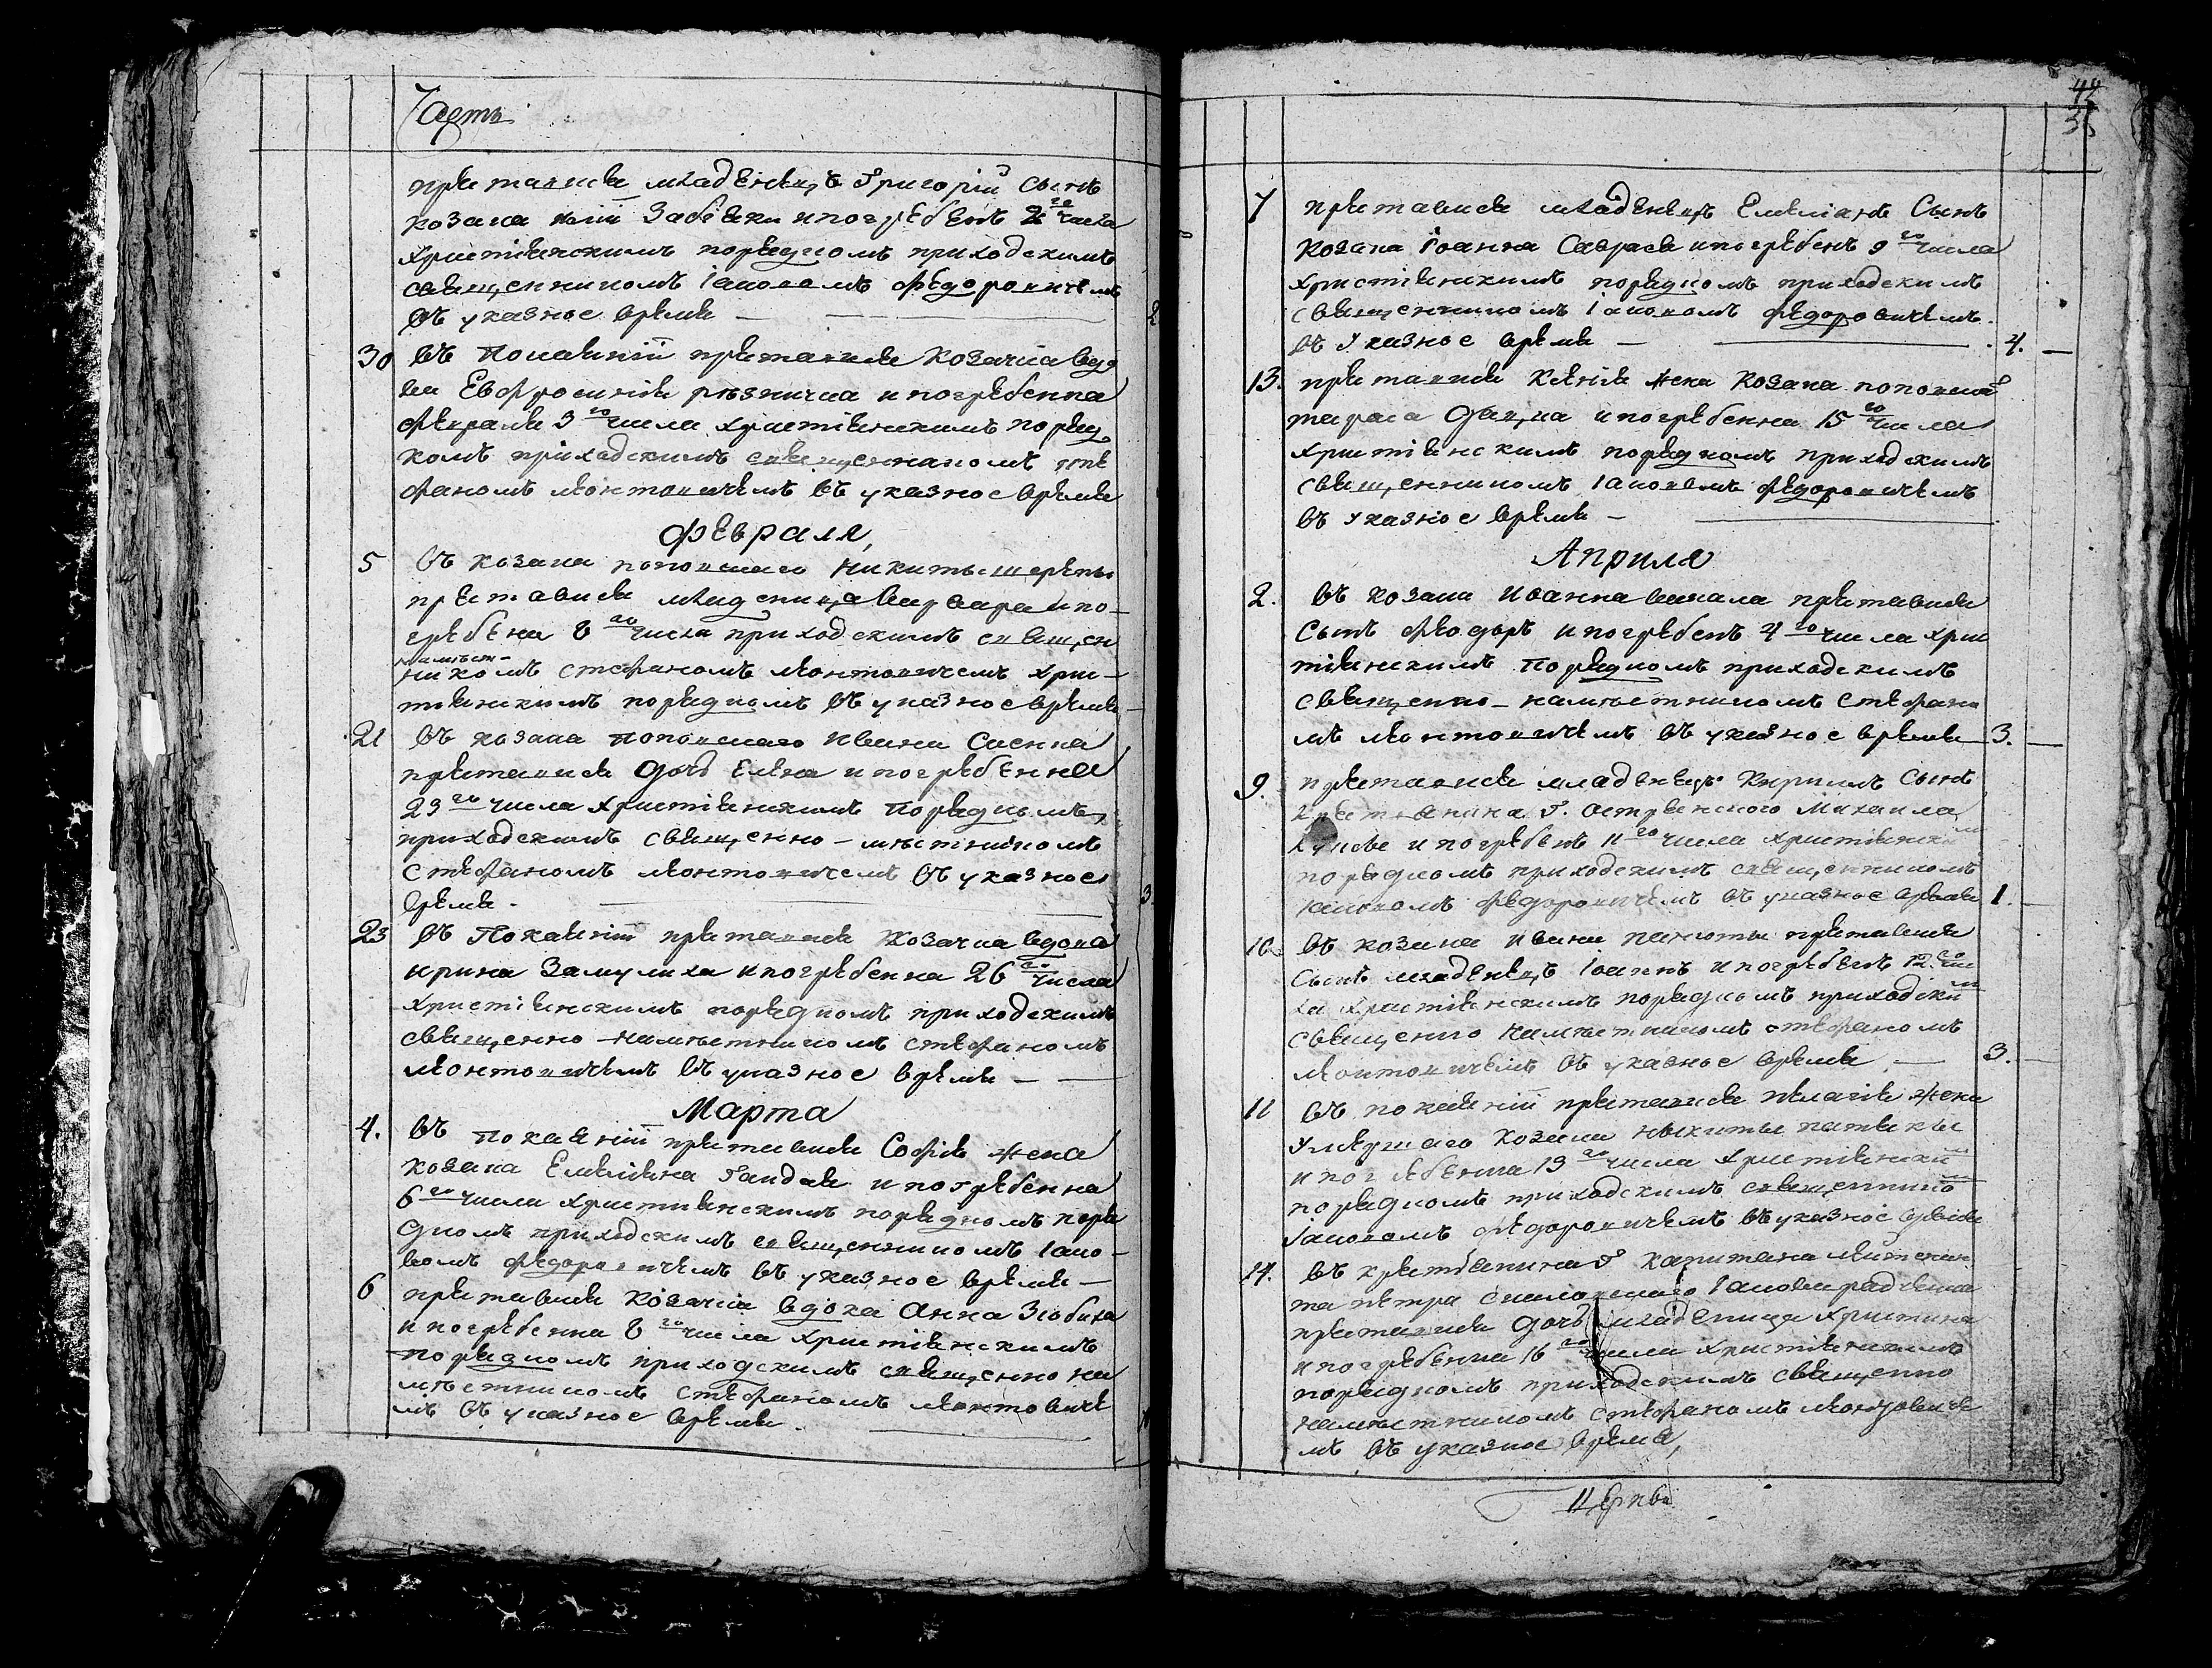 Часть
преставися младенецъ Григорій Сынъ
козака Забѣяки и погребенъ 2го числа
христіянскимъ порядкомъ приходскимъ
священникомъ Іаковомъ Федоровичемъ
въ указное время —
30 въ Покаяніи преставися Козачка вдо
ва Евфросинія Рѣзничка и погребенна
февраля 3го числа христіянскимъ поряд
комъ приходскимъ священникомъ Сте
фаномъ Леонтовичемъ въ указное время
Февраля,
5 Въ козака поповскаго Никиты Шерепы
преставися младеница Варвара и по-
гребена 8го числа приходскимъ священ
намѣст-
никомъ Стефаномъ Леонтовичемъ Хрис-
тіянскимъ порядкомъ въ указное время
21 Въ козака поповскаго Ивана Саенка
преставися Дочь Елена и погребенна
23го числа христіянскимъ порядкомъ
приходскимъ священно-мѣстникомъ
Стефаномъ Леонтовичемъ въ указное
время - 3
23 въ Покаяніи преставися Козачка вдова
Ирина Замулиха и погребенна 26го числа
Христіянскимъ порядкомъ приходскимъ
священно-намѣстникомъ Стефаномъ
Леонтовичемъ въ указное время —
Марта
4. въ покаяніи преставися Софія жена
козака Емеліяна Гандзи и погребенна
6го числа христіянскимъ порядкомъ поря
дкомъ приходскимъ священникомъ Іако-
вомъ Федоровичемъ въ указное время —
6 преставися Козачка вдова Анна Зюбиха
и погребенна 8го числа христіянскимъ
порядкомъ приходскимъ священно на
мѣстникомъ Стефаномъ Леонтовиче
мъ въ указное время.
44
7 преставися младенецъ Емеліянъ Сынъ
козака Іоанна Саврася и погребенъ 9го числа
христіянскимъ порядкомъ приходскимъ
священникомъ Іаковомъ Федоровичемъ.
въ указное время — 4. —
13. преставися Ксенія жена козака поповскаго
Тараса Дацка и погребенна 15го числа
христіянскимъ порядкомъ приходскимъ
священникомъ Іаковомъ Федоровичемъ
въ указное время —
Априля
2. въ козака Иоанна преставися
Сынъ Феодоръ и погребенъ 4го числа хрис
тіянскимъ порядкомъ приходскимъ
священно-намѣстникомъ Стефано
мъ Леонтовичемъ въ указное время 3. —
9. преставися младенецъ Кириллъ Сынъ
крестянина Г. Острянского Михаила
и погребенъ 11го числа христіянским
порядкомъ приходскимъ священникомъ
Іаковомъ Федоровичемъ въ указное время 1. —
10. въ козака Ивана преставися
Сынъ младенецъ Іоаннъ и погребенъ 12го чис
ла христіянскимъ порядкомъ приходским
священно намѣстникомъ Стефаномъ
Леонтовичемъ въ указное время — 3. —
11 въ покаяніи преставися Пелагія жена
умершаго козака Никиты
и погребенна 13го числа христіянским
порядкомъ приходскимъ священнико
Іаковомъ Федоровичемъ въ указное время
14. въ крестянина Г Капитана Лейтенан
та Петра Іакова
преставися Дочь младеница Христина
и погребенна 16го числа христіянскимъ
порядкомъ приходскимъ священно
намѣстникомъ Стефаномъ Леонтовиче
мъ въ указное время,
Церкви